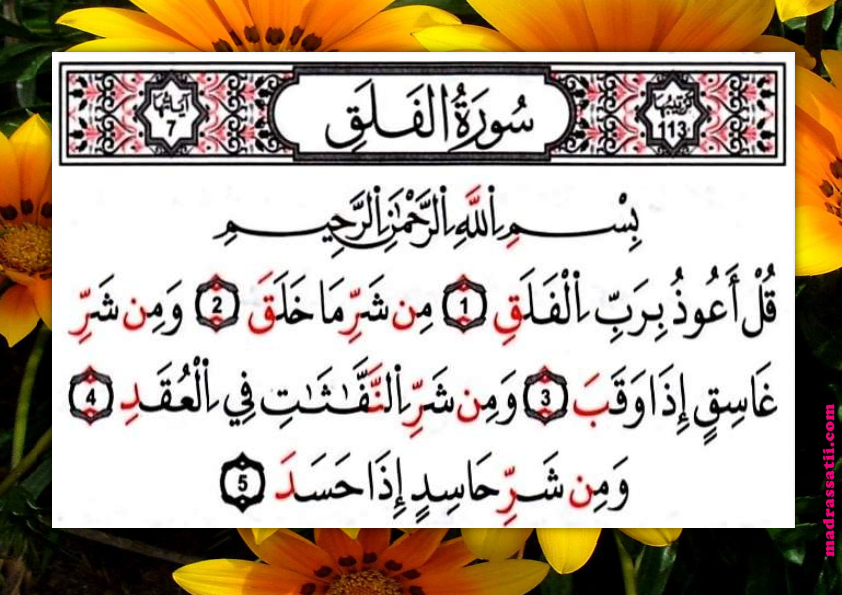 آياتها 7
سُورَةُ الْفَلَقِ
ترتيبها 113
بِسْمِ اِللَّهِ اِلرَّحْمَٰنِ اِلرَّحِيمِ
قُلْ أَعُوذُ بِرَبِّ اِلْفَلَقِ 1 مِن شَرِّ مَا خَلَقَ 2 وَمِن شَرِّ
غَاسِقٍ إِذَا وَقَبَ 3 وَمِن شَرِّ اِلنَّفَّٰثَٰتِ فِي اِلْعُقَدِ 4
وَمِن شَرِّ حَاسِدٍ إِذَا حَسَدَ 5
madrassatii.com